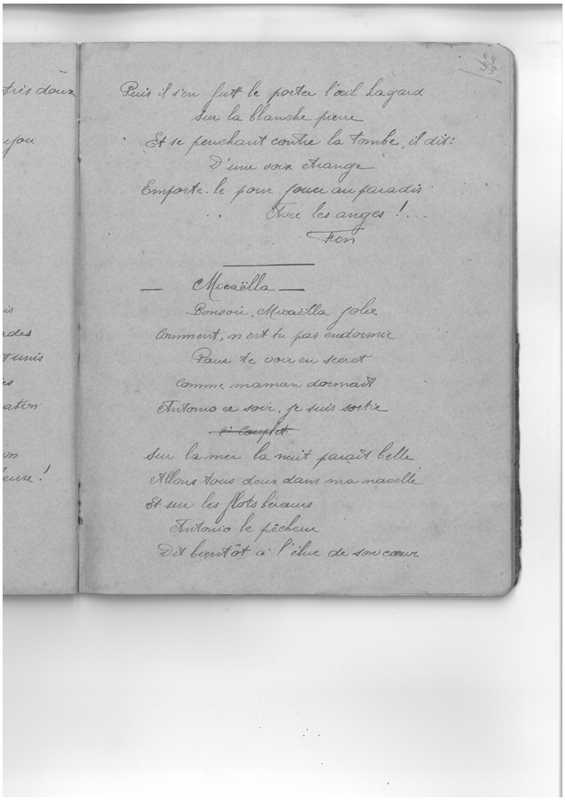 très doux
you
is
rdes
t unis
es
ation
on
leure !
Puis il s'en fut le porter l'œil hagard
Sur la blanche pierre
Et se penchant contre la tombe, il dit :
D'une voix étrange
Emporte-le pour jouer au paradis
Avec les anges ! ...
Fin
— Micaëlla —
Bonsoir, Micaëlla jolie
Comment, n'est tu pas endormie
Pour te voir en secret
Comme maman dormait
Antonio ce soir, je suis sortie
2e Couplet
Sur la mer la nuit paraît belle
Allons tous deux dans ma nacelle
Et sur les flots berceurs
Antonio le pêcheur
Dit bientôt à l'élue de son cœur